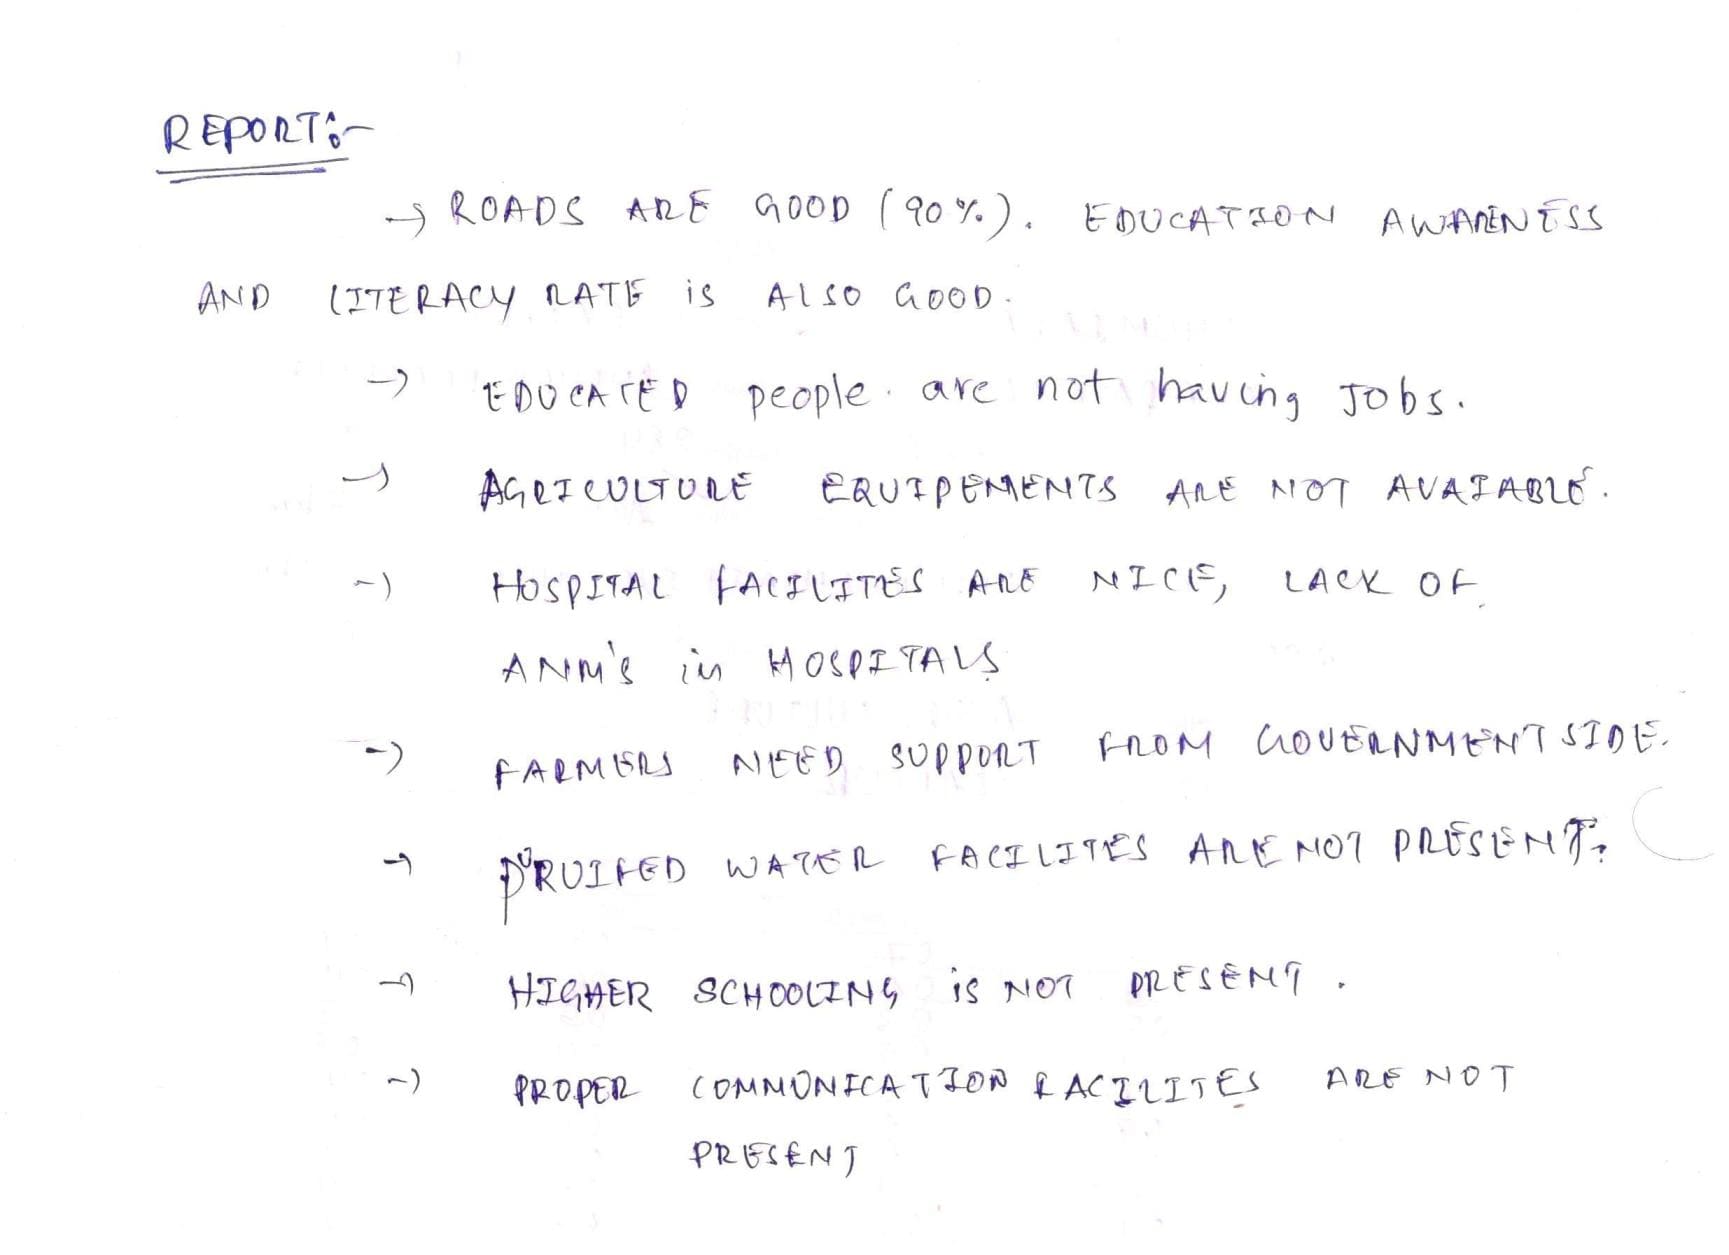 REPORT:-
→ ROADS ARE GOOD (90%). EDUCATION AWARENESS
AND LITERACY RATE is ALSO GOOD.
→ EDUCATED people are not having Jobs.
→ AGRICULTURE EQUIPEMENTS ARE NOT AVAIABLE.
→ HOSPITAL FACILITES ARE NICE, LACK OF
ANM's in HOSPITALS
→ FARMERS NEED SUPPORT FROM GOVERNMENT SIDE.
→ PURUIFED WATER FACILITES ARE NOT PRESENT.
→ HIGHER SCHOOLING is NOT PRESENT.
→ PROPER COMMUNICATION FACILITES ARE NOT
PRESENT